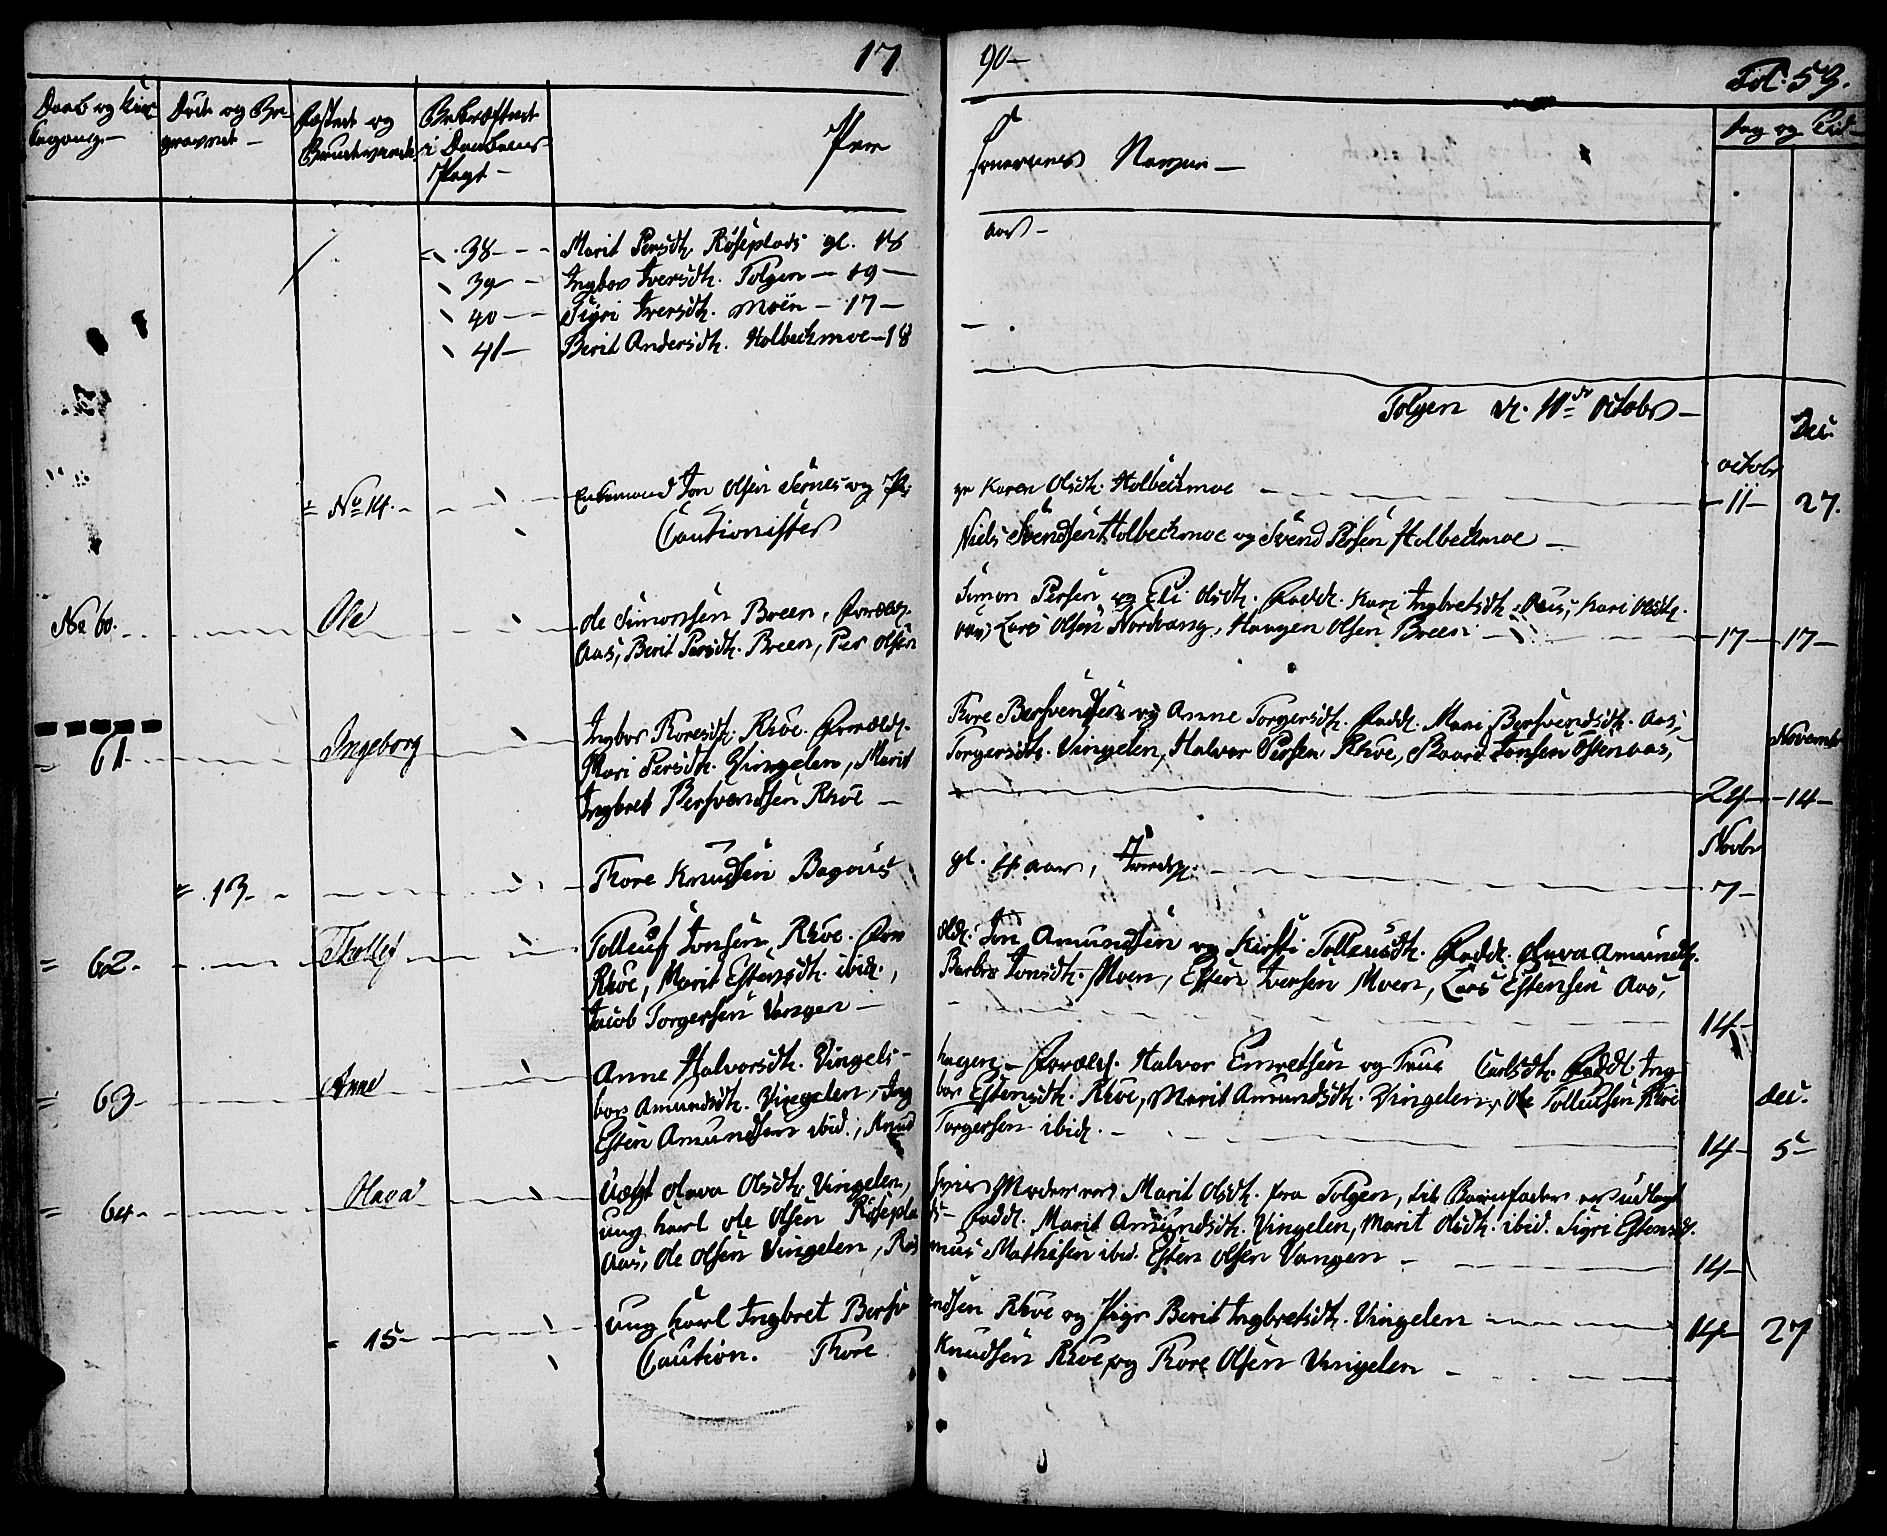 17 90 –
Fol. 53.
Daab og Kirkegang – Døde og Begravne – Fæstede og Brudeviede Bekræftede i Daabens Pagt – Personernes Navne – Dag og Tid –
38 – Marit Persdtr. Røseplads gl. 18 aar –
39 – Ingbor Iversdtr. Tolgen – 19 –
40 – Sigri Iversdtr. Moen – 17 –
41 – Berit Andersdtr. Holbeckmoe – 18
Tolgen d. 11de Octobr –
Dec.
octobr
No 14. – Enkemand Jon Olsen Fernes og Pige Karen Olsdtr. Holbeckmoe – 11 – 27.
Cautionister Niels Svendsen Holbeckmoe og Svend Persen Holbeckmoe –
No 60. Ole Ole Simonsen Breen, Foræld. Simon Persen og Eli Olsdtr. Fadd. Kari Ingbretsdtr. Aas, Kari Olsdtr.
Aas, Berit Persdtr. Breen, Per Olsen Aas, Lars Olsen Nordvang, Haagen Olsen Breen – 17 – 17 –
61 – Ingeborg Ingbor Thoresdtr. Rhoe. Foræld. Thore Bersvendsen og Anne Torgersdtr. Fadd. Mari Bersvendsdtr. Aas,
Mari Persdtr. Vingelen, Marit Torgersdtr. Vingelen, Halvor Persen Rhoe, Baard Jonsen Østenaas, Novembr
Ingbret Bersvendsen Rhoe – 24 – 14 –
Novbr
13 – Thore Knudsen Bagaas gl. 4 aar, – 7 –
62 – Thollef Tolleuf Jonsen, Rhoe. Foræld. Jon Amundsen og Kirsti Tolleusdtr. Fadd. Olava Amundsdtr.
Rhoe, Marit Estensdtr. ibid., Barbro Jonsdtr. Moen, Esten Iversen Moen, Lars Estensen Aas,
Jacob Torgersen Vangen – 14 –
63 – Anne Anne Halvorsdtr. Vingelshagen – Foræld. Halvor Emretsen og True Carlsdtr. Fadd. Ing-
bor Amundsdtr. Vingelen, Ingbor Estensdtr. Rhoe, Marit Amundsdtr. Vingelen, Ole Tolleusen Rhoe dec.
Esten Amundsen ibid., Knud Torgersen ibid. – 14 – 5 –
64 – Olava Uægt Olava Olsdtr. Vingelen, hvis Moder er Marit Olsdtr. fra Tolgen, til Barnefader er udlagt
ung karl Ole Olsen Røseplads – Fadd. Marit Amundsdtr. Vingelen, Marit Olsdtr. ibid. Sigri Estensdtr.
Aas, Ole Olsen Vingelen, Rasmus Mathisen ibid. Esten Olsen Vangen – 14 –
15 – ung karl Ingbret Bersvendsen Rhoe og Pige Berit Ingbretsdtr. Vingelen – 14 – 27
Caution. Thore Knudsen Rhoe og Thore Olsen Vingelen –